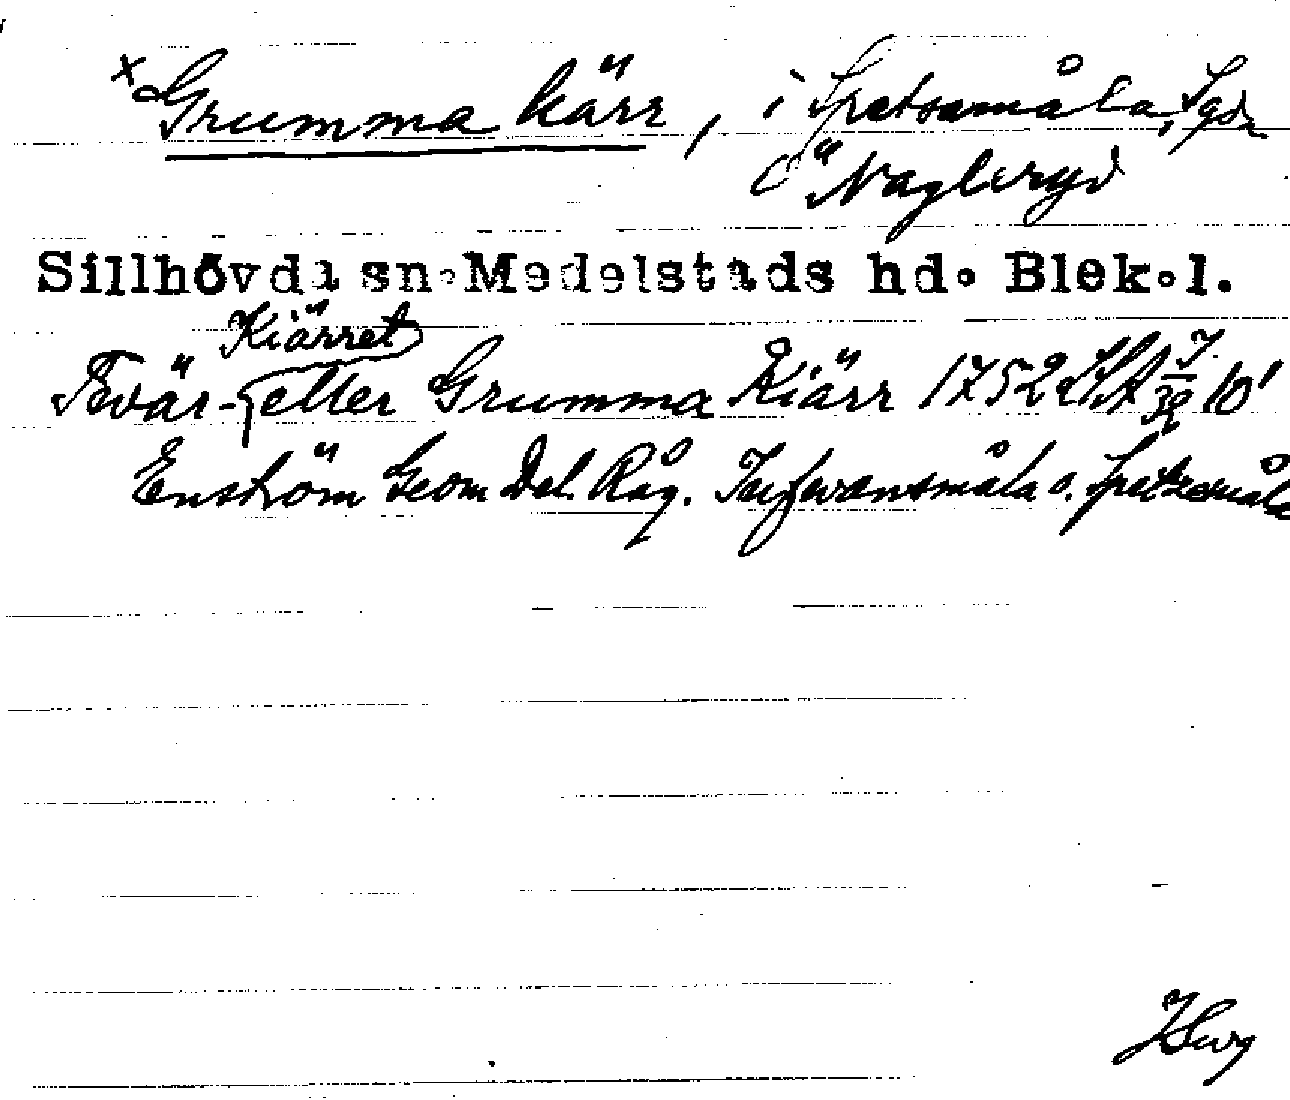 x Grumma kärr, i Spetsamåla, Sgdn
O "Nagleryd
Sillhövda sn. Medelstads hd. Blek. l.
Kiärret
Tvär- eller Grumma Kiärr 1752 LSA J/32 10¹
Enström Geom Del. Råg. o. Spetzemåla